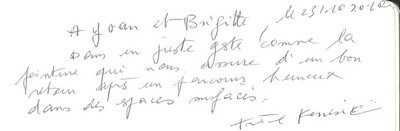 A Yoan et Brigitte, le 23.10.20.10
Dans un juste geste comme la
peinture qui nous assure d'un bon
retour après un parcours heureux
dans des espaces